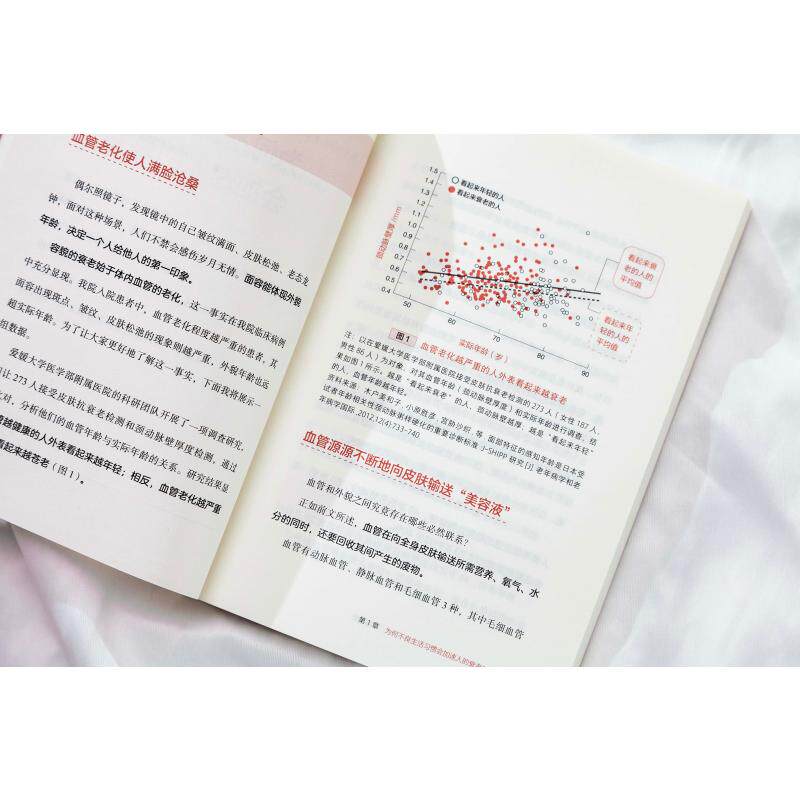 血管老化使人满脸沧桑
偶尔照镜子，发现镜中的自己皱纹满面、皮肤松弛、老态龙
钟，面对这种场景，人们不禁会感伤岁月无情。面容能体现外貌
年龄，决定一个人给他人的第一印象。
容貌的衰老始于体内血管的老化，这一事实在我院临床病例
中充分显现。我院入院患者中，血管老化程度越严重的患者，其
面容出现斑点、皱纹、皮肤松弛的现象则越严重，外貌年龄也远
超实际年龄。为了让大家更好地了解这一事实，下面我将展示一
组数据。
爱媛大学医学部附属医院的科研团队开展了一项调查研究，
让273人接受皮肤抗衰老检测和颈动脉壁厚度检测，通过
对，分析他们的血管年龄与实际年龄的关系。研究结果显
越健康的人外表看起来越年轻；相反，血管老化越严重
看起来越苍老（图1）。
颈动脉壁厚/mm
1.5
1.4
1.3
1.2
1.1
1.0
0.9
0.8
0.7
0.6
0.5
0.4
看起来年轻的人
看起来衰老的人
看起来衰
老的人的
平均值
看起来年
轻的人的
平均值
50 60 70 80 90
实际年龄（岁）
图1 血管老化越严重的人外表看起来越衰老
注：以在爱媛大学医学部附属医院接受皮肤抗衰老检测的273人（女性187人，
男性86人）为对象，对其血管年龄（颈动脉壁厚度）和实际年龄进行调查。结
果如图1所示。越是“看起来衰老”的人，颈动脉壁越厚，越是“看起来年轻”
的人，血管年龄越年轻。
资料来源：木户美和子，小原胜彦，宫胁沙织，等. 面部特征的感知年龄是日本受
试者年龄相关性颈动脉粥样硬化的重要诊断标准 J-SHIPP 研究[J] 老年病学和老
年病学国际. 2012,12(4):733-740
血管源源不断地向皮肤输送“美容液”
血管和外貌之间究竟存在哪些必然联系？
正如前文所述，血管在向全身皮肤输送所需营养、氧气、水
分的同时，还要回收其间产生的废物。
血管有动脉血管、静脉血管和毛细血管3种，其中毛细血管
第1章 为何不良生活习惯会加速人的衰老